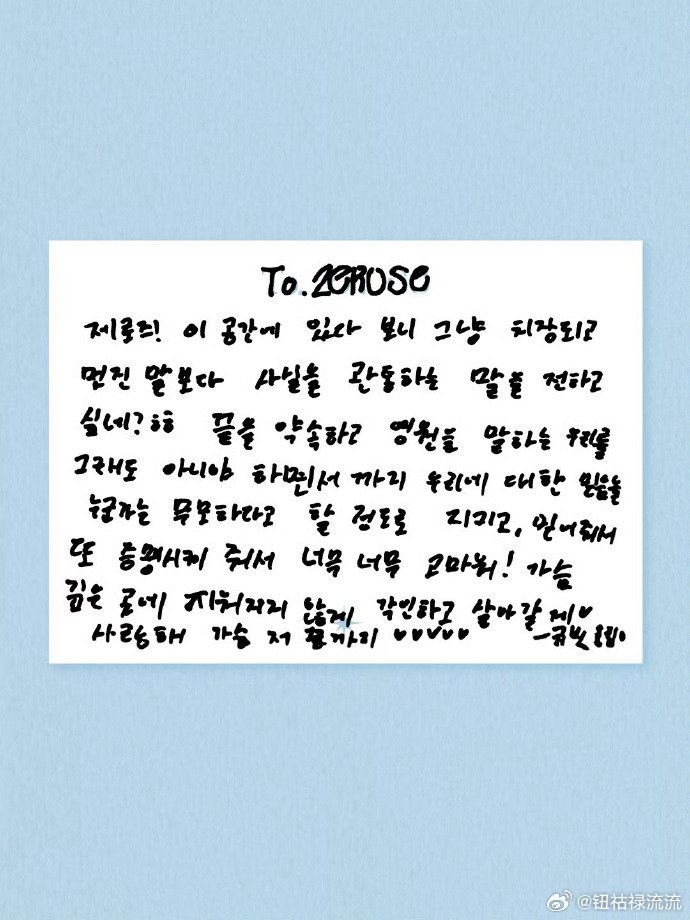 To. ZEROSE
제로즈! 이 공간에 있다 보니 그냥 치장되고
멋진 말보다 사실을 관통하는 말을 전하고
싶네?ㅎㅎ 끝을 약속하고 영원을 말하는 우리를
그래도 아니야 하면서 까지 우리에 대한 믿음을
누군가는 무모하다고 할 정도로 지키고, 믿어줘서
또 증명시켜 줘서 너무 너무 고마워! 가슴
깊은 곳에 지워지지 않게 각인하고 살아갈게♥
사랑해 가슴 저 끝까지 ♥♥♥♥♥ -규빈
@钮祜禄流流